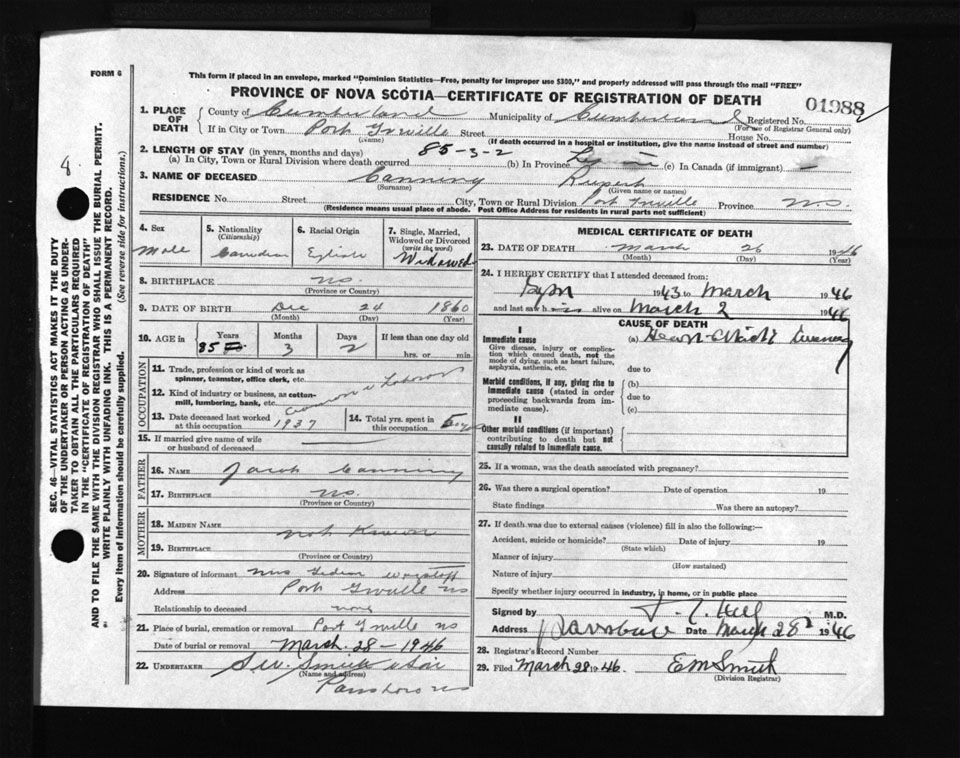 FORM 6
This form if placed in an envelope, marked "Dominion Statistics—Free, penalty for improper use $300," and properly addressed will pass through the mail "FREE"
PROVINCE OF NOVA SCOTIA—CERTIFICATE OF REGISTRATION OF DEATH
01988
1. PLACE OF DEATH
County of Cumberland Municipality of Cumberland Registered No.
(For use of Registrar General only)
If in City or Town Port Greville Street House No.
(Name)
(If death occurred in a hospital or institution, give the name instead of street and number)
2. LENGTH OF STAY (in years, months and days) 85-3-2
(a) In City, Town or Rural Division where death occurred (b) In Province (c) In Canada (if immigrant) —
3. NAME OF DECEASED Canning Rupert
(Surname) (Given name or names)
RESIDENCE No. Street City, Town or Rural Division Port Greville Province N.S.
(Residence means usual place of abode. Post Office Address for residents in rural parts not sufficient)
4. Sex Male
5. Nationality (Citizenship) Canadian
6. Racial Origin English
7. Single, Married, Widowed or Divorced (write the word) Widowed
8. BIRTHPLACE N.S.
(Province or Country)
9. DATE OF BIRTH Dec 24 1860
(Month) (Day) (Year)
10. AGE in Years Months Days If less than one day
85 3 2 hrs. or min.
OCCUPATION
11. Trade, profession or kind of work as spinner, teamster, office clerk, etc. Laborer
12. Kind of industry or business, as cotton-mill, lumbering, bank, etc. Common
13. Date deceased last worked at this occupation 1937
14. Total yrs. spent in this occupation
15. If married give name of wife or husband of deceased
FATHER
16. NAME Jacob Canning
17. BIRTHPLACE N.S.
(Province or Country)
MOTHER
18. MAIDEN NAME not Known
19. BIRTHPLACE
(Province or Country)
20. Signature of informant Mrs Wagstaff
Address Port Greville NS
Relationship to deceased none
21. Place of burial, cremation or removal Port Greville NS
Date of burial or removal March. 28 - 1946
22. UNDERTAKER Smith & Son
(Name and address)
Parrsboro NS
MEDICAL CERTIFICATE OF DEATH
23. DATE OF DEATH March 26 1946
(Month) (Day) (Year)
24. I HEREBY CERTIFY that I attended deceased from:
1943 to March 1946
and last saw him alive on March 2 1946
CAUSE OF DEATH
I
Immediate cause
Give disease, injury or complication which caused death, not the mode of dying, such as heart failure, asphyxia, asthenia, etc.
(a) Heart
due to
Morbid conditions, if any, giving rise to immediate cause (stated in order proceeding backwards from immediate cause).
(b)
due to
(c)
II
Other morbid conditions (if important) contributing to death but not causally related to immediate cause.
25. If a woman, was the death associated with pregnancy?
26. Was there a surgical operation? Date of operation 19
State findings Was there an autopsy?
27. If death was due to external causes (violence) fill in also the following:—
Accident, suicide or homicide? Date of injury 19
(State which)
Manner of injury
(How sustained)
Nature of injury
Specify whether injury occurred in industry, in home, or in public place
Signed by M.D.
Address Parrsboro Date March 28 1946
28. Registrar's Record Number
29. Filed March 28 1946. E M Smith
(Division Registrar)
8
SEC. 46—VITAL STATISTICS ACT MAKES IT THE DUTY
OF THE UNDERTAKER OR PERSON ACTING AS UNDER-
TAKER TO OBTAIN ALL THE PARTICULARS REQUIRED
IN THE "CERTIFICATE OF REGISTRATION OF DEATH"
AND TO FILE THE SAME WITH THE DIVISION REGISTRAR WHO SHALL ISSUE THE BURIAL PERMIT.
WRITE PLAINLY WITH UNFADING INK. THIS IS A PERMANENT RECORD.
Every item of information should be carefully supplied. (See reverse side for instructions.)